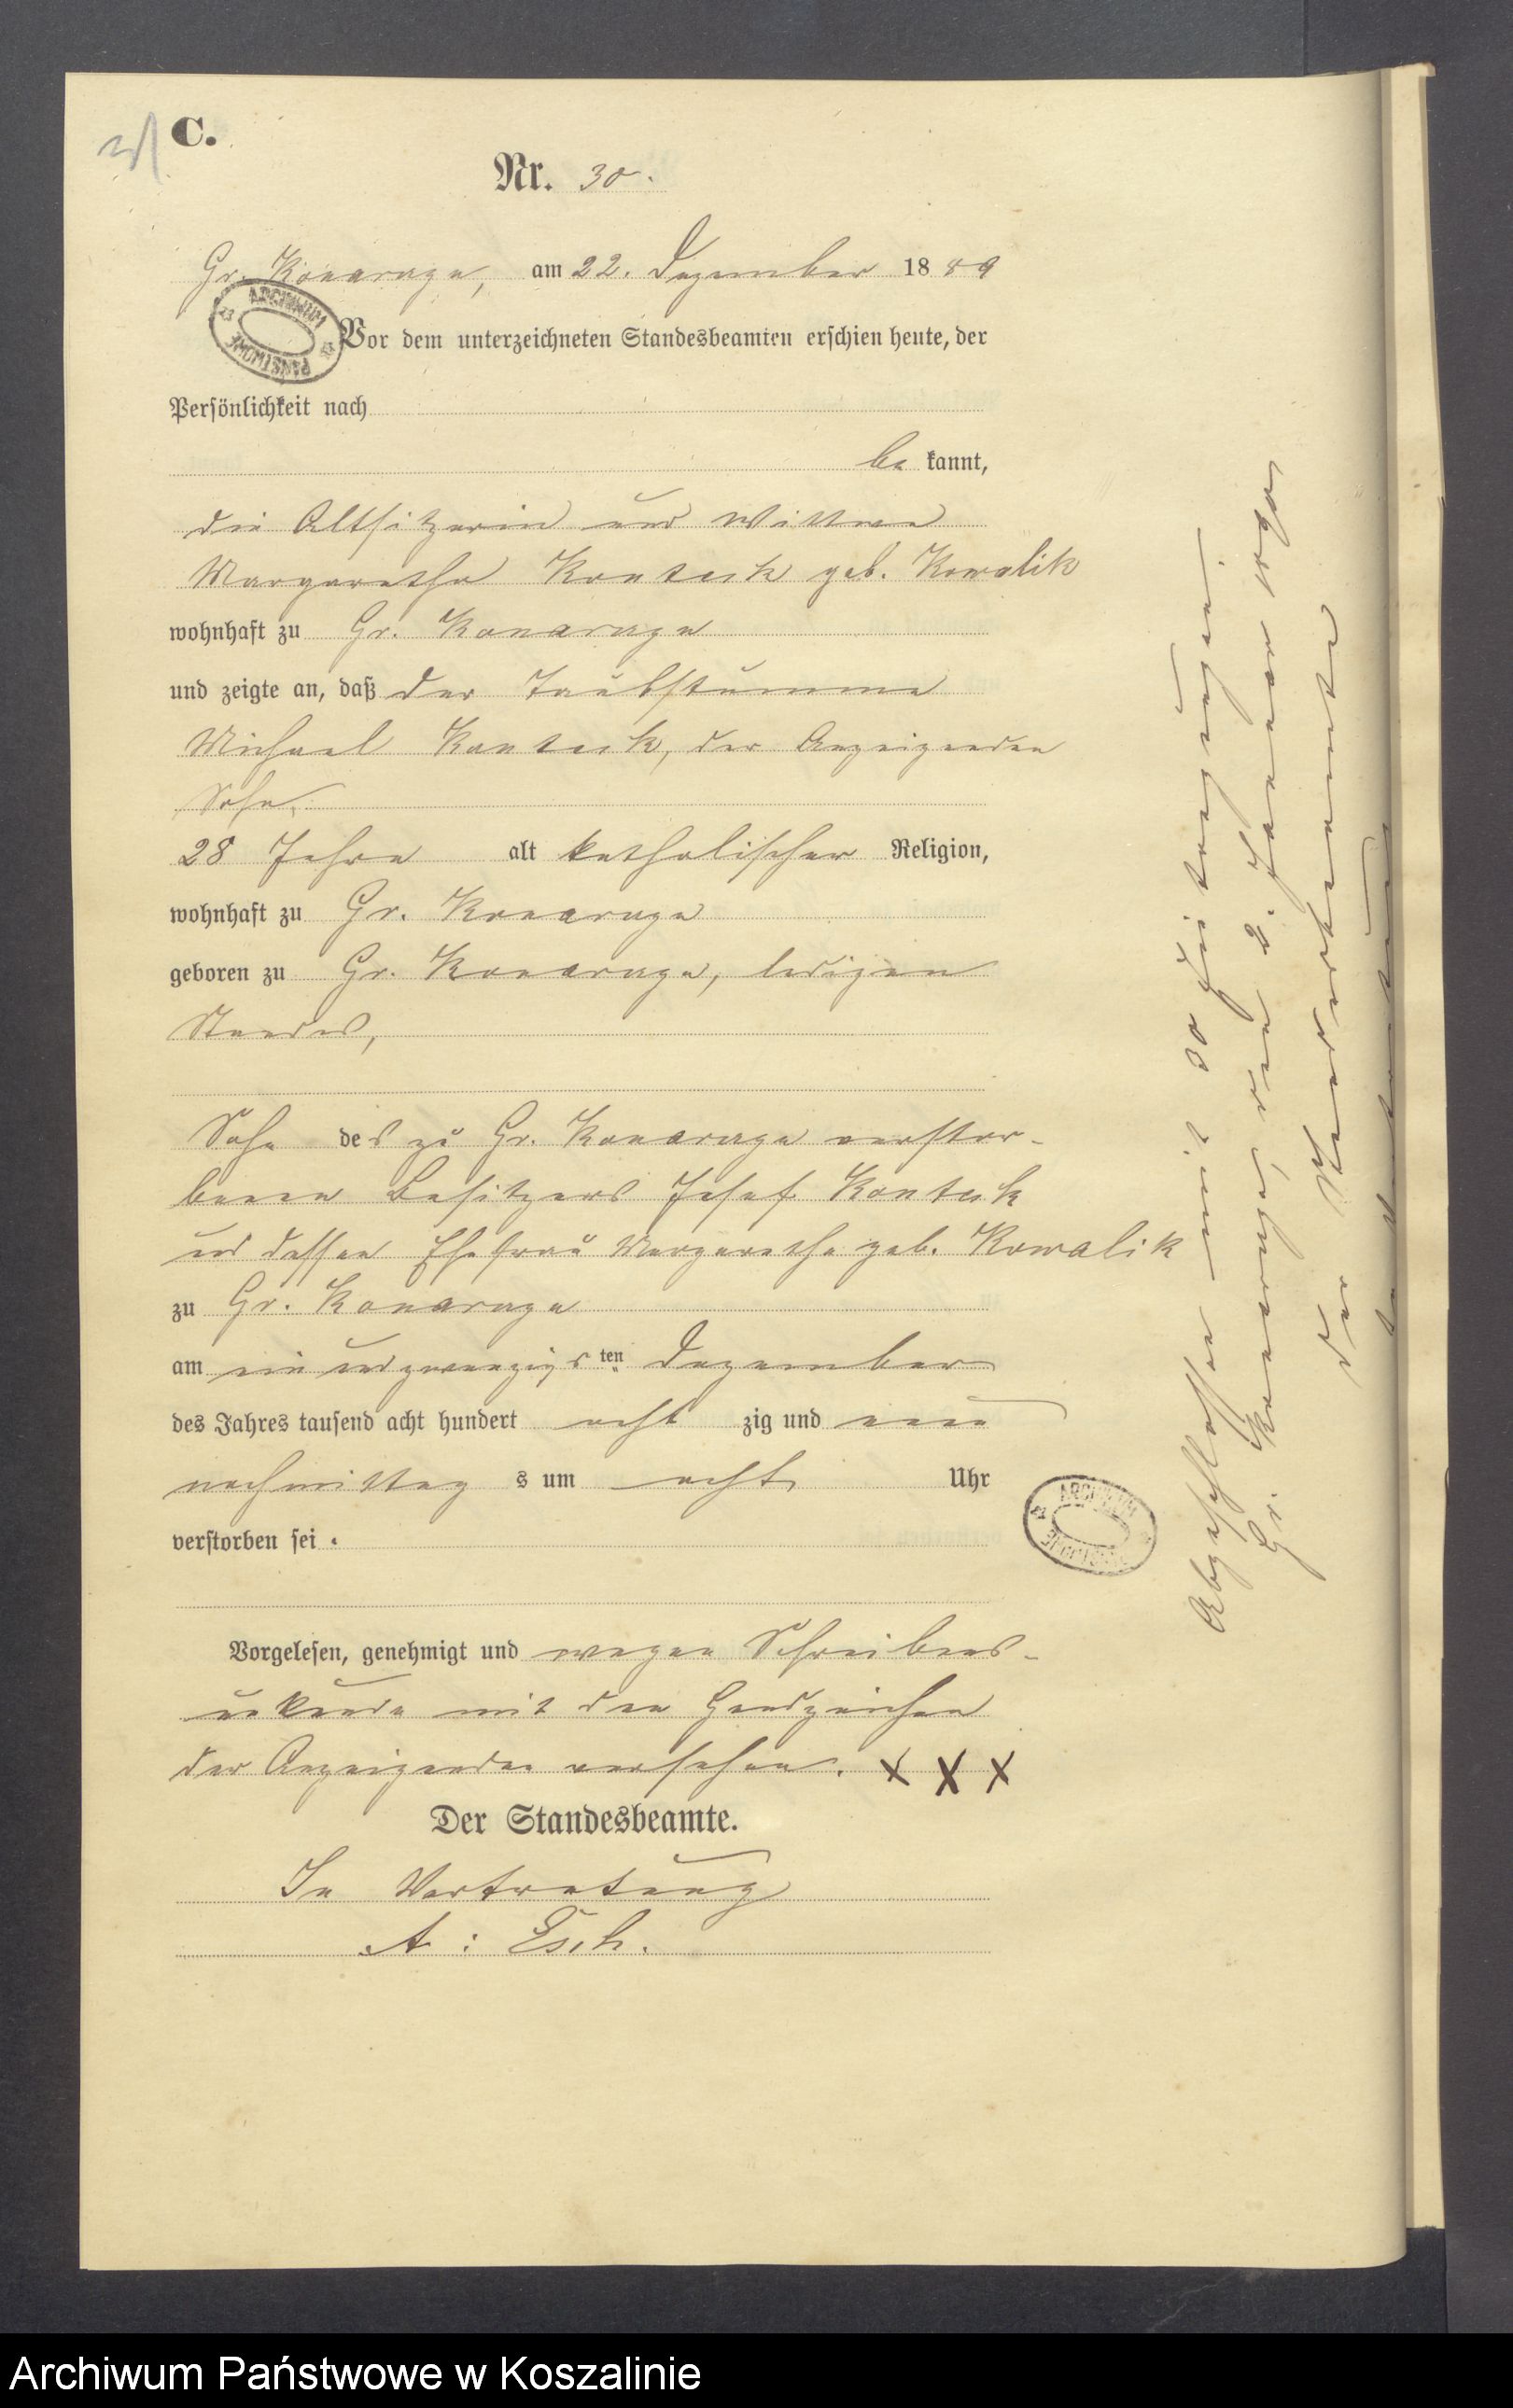 C.
Nr. 30.
Gr. Konarczyn, am 22. Dezember 1889
ARCHIWUM PAŃSTWOWE
Vor dem unterzeichneten Standesbeamten erschien heute, der
Persönlichkeit nach
be kannt,
die Altsitzerin und Wittwe
Margaretha Kontek geb. Kowalik
wohnhaft zu Gr. Konarczyn
und zeigte an, daß der Taubstumme
Michael Kontek, der Anzeigenden
Sohn,
28 Jahre alt katholischer Religion,
wohnhaft zu Gr. Konarczyn
geboren zu Gr. Konarczyn, ledigen
Standes,
Sohn des zu Gr. Konarczyn verstor-
benen Besitzers Josef Kontek
und dessen Ehefrau Margaretha geb. Kowalik
zu Gr. Konarczyn
am ein und zwanzigsten Dezember
des Jahres tausend acht hundert acht zig und neun
nachmittags um acht Uhr
verstorben sei.
Vorgelesen, genehmigt und wegen Schreibens-
unkunde mit den Handzeichen
der Anzeigenden versehen. X X X
Der Standesbeamte.
In Vertretung
A: Esch.
ARCHIWUM
Abgeschlossen mit 30 Eintragungen.
Gr. Konarczyn, den 2. Januar 1890
Der Standesbeamte
In Vertretung
Archiwum Państwowe w Koszalinie